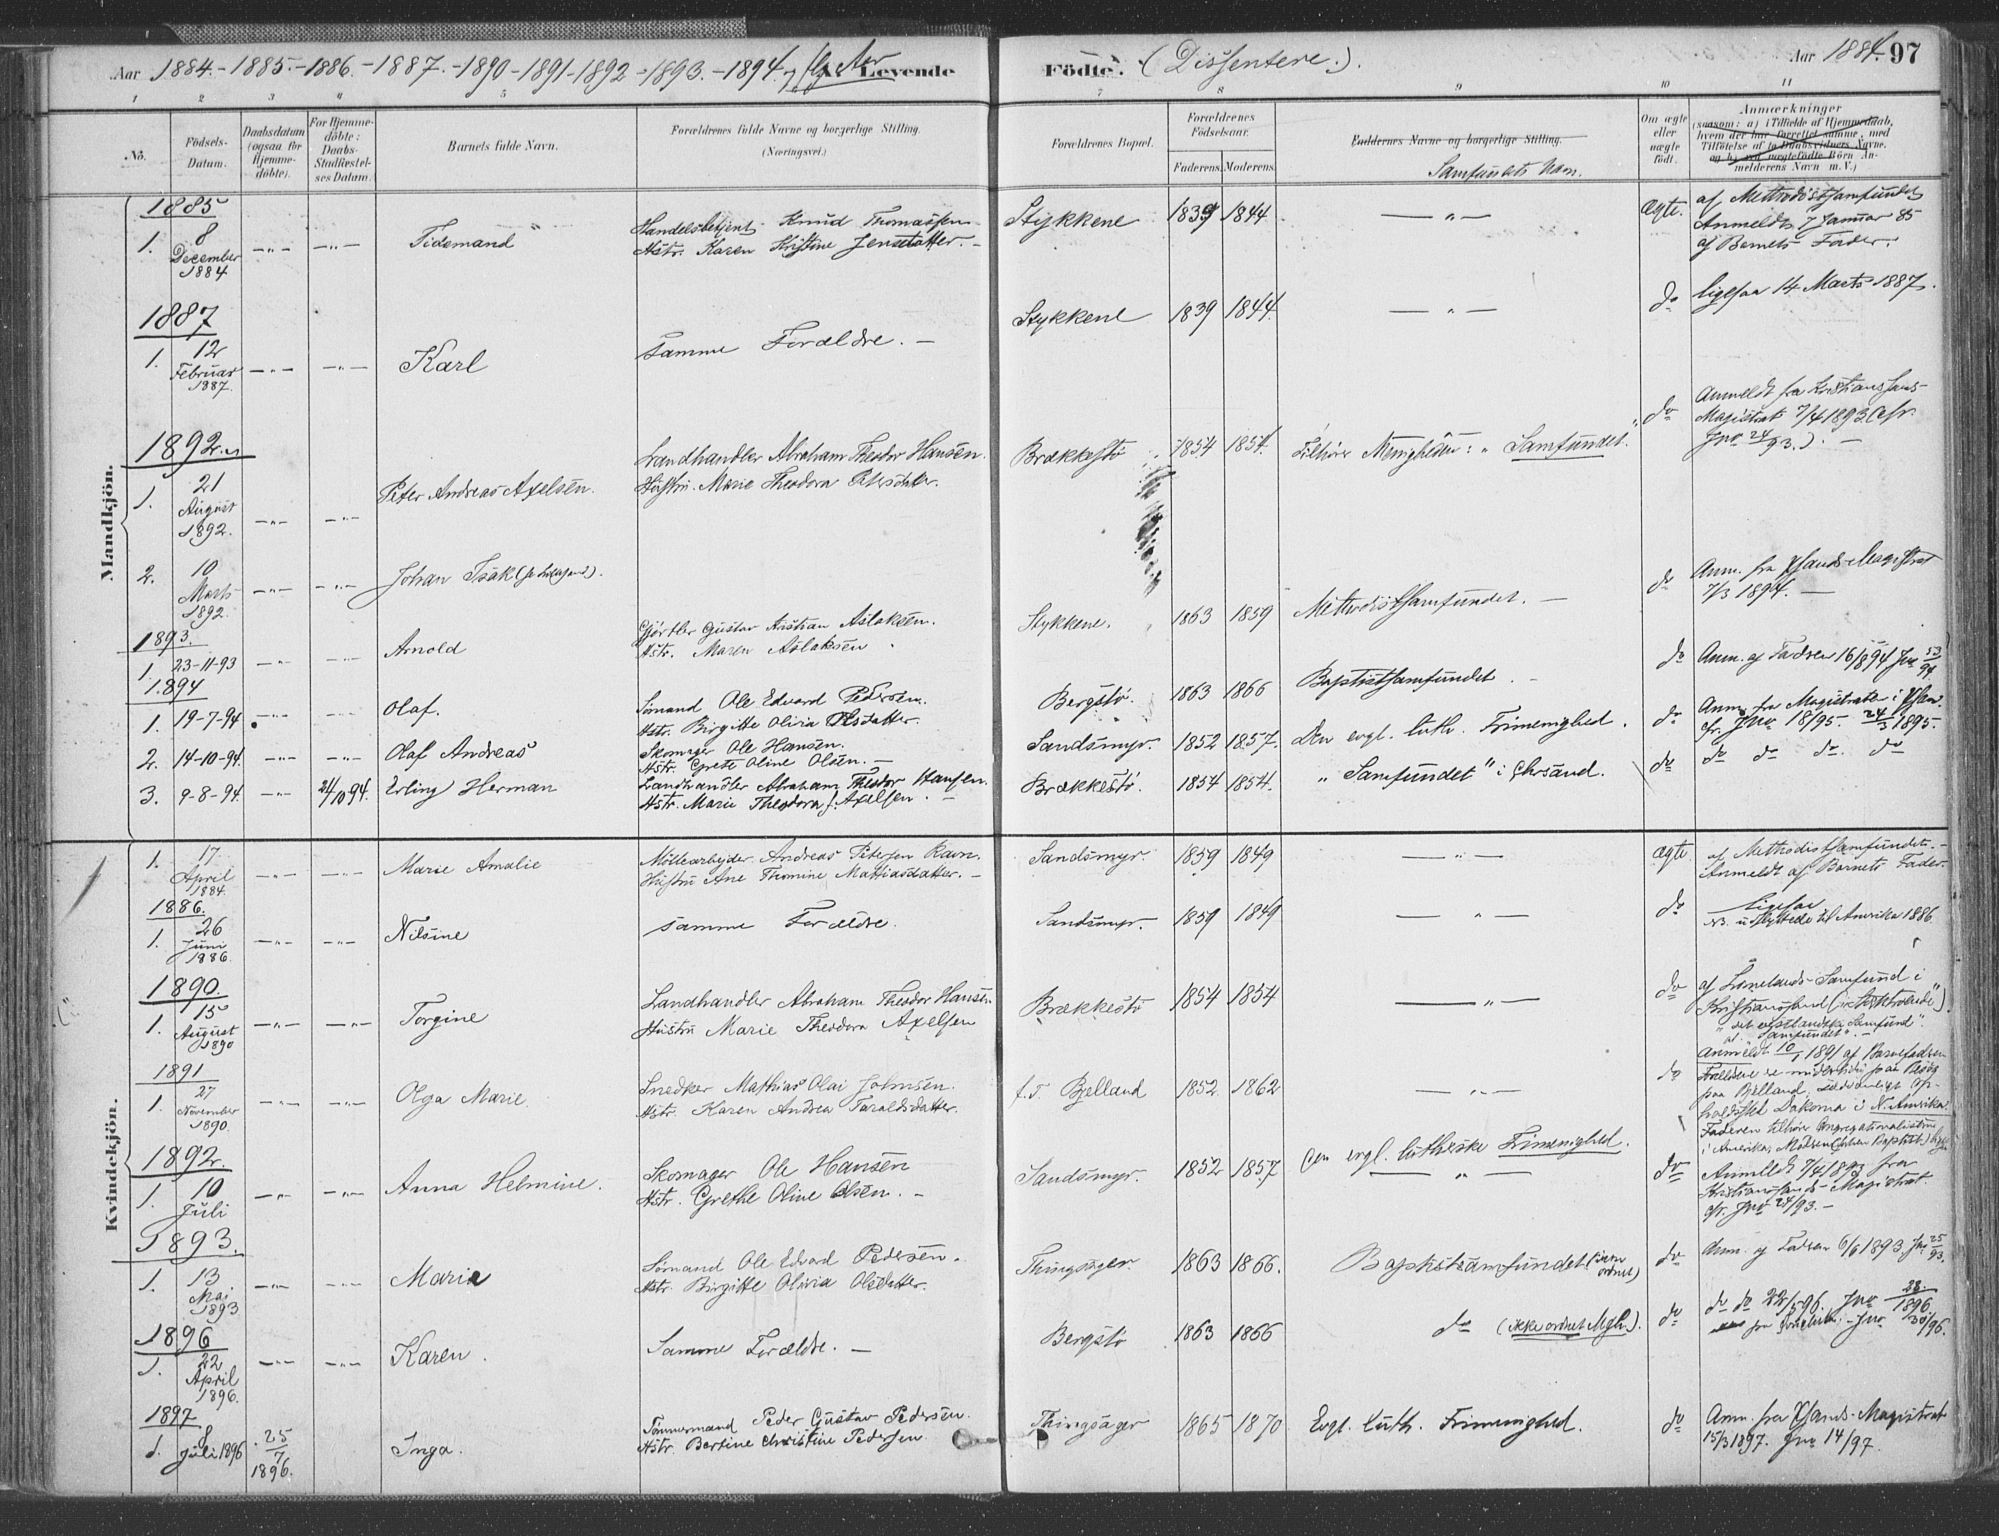 Aar 1884.-1885.-1886.-1887.-1890-1891-1892-1893.-1894 Levende Födte. (Dissentere.). Aar 1884. 97
1 2 3 4 5 7 8 9 10 11
No. Födsels-Datum. Daabsdatum (ogsaa for Hjemmedöbte). For Hjemmedöbte: Daabs-Stadfæstelses Datum. Barnets fulde Navn. Forældrenes fulde Navne og borgerlige Stilling. (Næringsvei.) Forældrenes Bopæl. Forældrenes Födselsaar. Faderens. Moderens. Faddernes Navne og borgerlige Stilling. Samfundets Navn. Om ægte eller uægte födt. Anmærkninger (saasom: a) i Tilfælde af Hjemmedaab, hvem der har forrettet samme, med Tilföielse af to Daabsvidners Navne. og b) ved uægtefödte Börn Anmelderens Navn m.V.)
Mandkjön.
1885
1. 8 December 1884 Tidemand Handelsbetjent Knud Thomassen Hstr. Karen Kristine Jensdatter. Stykkene 1839 1844 Ægte. af Methodistsamfundet Anmeldt 7 Januar 85 af Barnets Fader.
1887
1. 12 Februar 1887. Karl Samme Forældre. Stykkene 1839 1844. do ligesaa 14 Marts 1887.
1892
1. 21 August 1892. Peter Andreas Axelsen. Landhandler Abraham Theodor Hansen. Hustru Marie Theodora Brækkestö 1854 1854. Tilhörer Menigheden: "Samfundet." do Anmeldt fra Kristianssands Magistrat 7/4 1893 (cfr. Jno 24/93.)
2. 10 Marts 1892. Johan Isak
1893.
1. 23-11-93 Arnold Gjörtler Gustav Kristian Aslaksen. Hstr. Maren Aslaksen Stykkene. 1863 1859 Methodistsamfundet. do Anm. fra Magistrat 7/3 1894.
1894
1. 19-7-94. Olaf. Sömand Ole Edvard Pedersen. Hstr. Birgitte Olivia Olsdatter. Bergstö. 1863 1866 Baptistsamfundet. do Anm. af Faderen 16/8 94 Jno 53/94
2. 14-10-94. Olaf Andreas Skomager Ole Hansen. Hstr. Grete Oline Olsen. Sandsmyr. 1852 1857. Den evgl. luth. Frimenighed. do Anm. fra Magistraten i cfr. Jno 18/95. 24/3 1895.
3. 9-8-94. 24/10 94. Erling Herman Landhandler Abraham Theodor Hansen. Hstr. Marie Theodora f. Axelsen. Brækkestö. 1854 1854. "Samfundet" i Chrsand. do do do do. do
Kvindekjön.
1. 17 April 1884 Marie Amalie Möllearbejder Andreas Petersen Ravn. Hustru Ane Thomine Mathiasdatter. Sandsmyr. 1859 1849 Ægte af Methodistsamfundet. Anmeldt af Barnets Fader.
1886.
1. 26 Juni 1886. Nilsine Samme Forældre. Sandsmyr. 1859 1849 do Ligesaa udflyttede til Amerika 1886
1890.
1. 15 August 1890 Torgine Landhandler Abraham Theodor Hansen Hustru Marie Theodora Axelsen Brækkestö 1854 1854 do af Samfund i Kristianssand "Samfundet". Anmeldt 10/1 1891 af Barnefaderen
1891
1. 27 November 1890. Olga Marie. Snedker Mathias Olai Johnsen. Hstr. Karen Andrea Taraldsdatter. f.T. Bjelland 1852. 1862 do Forældrene midlertidig paa Besög paa Bjelland, Dakota i N. Amerika. Faderen tilhörer i Amerika, Moderen
1892.
1. 10 Juli Anna Helmine. Skomager Ole Hansen Hstr. Grethe Oline Olsen. Sandsmyr. 1852 1857 Den evgl. lutherske Frimenighed. do Anmeldt 7/4 1893 fra Kristianssands-Magistrat. cfr. Jno 24/93.
1893.
1. 13 Mai 1893 Marie Sömand Ole Edvard Pedersen. Hstr. Birgitte Olivia Olsdatter. Thingsager 1863 1866. Baptistsamfundet do Anm. af Faderen 6/6 1893. Jno 25/93.
1896
1. 22 April 1896. Karen. Samme Forældre. Bergstö 1863 1866 do (ikke ordnet Mgh.). do do do 22/5 96. Jno 28/1896.
1897
1. 8 Juli 1896 25/7 1896. Inga. Tömmermand Peder Gustav Pedersen. Hstr. Bertine Christine Pedersen. Thingsager 1865 1870 Evgl. luth. Frimenighed. do Anm. fra Magistrat 15/3 1897. Jno 14/97.